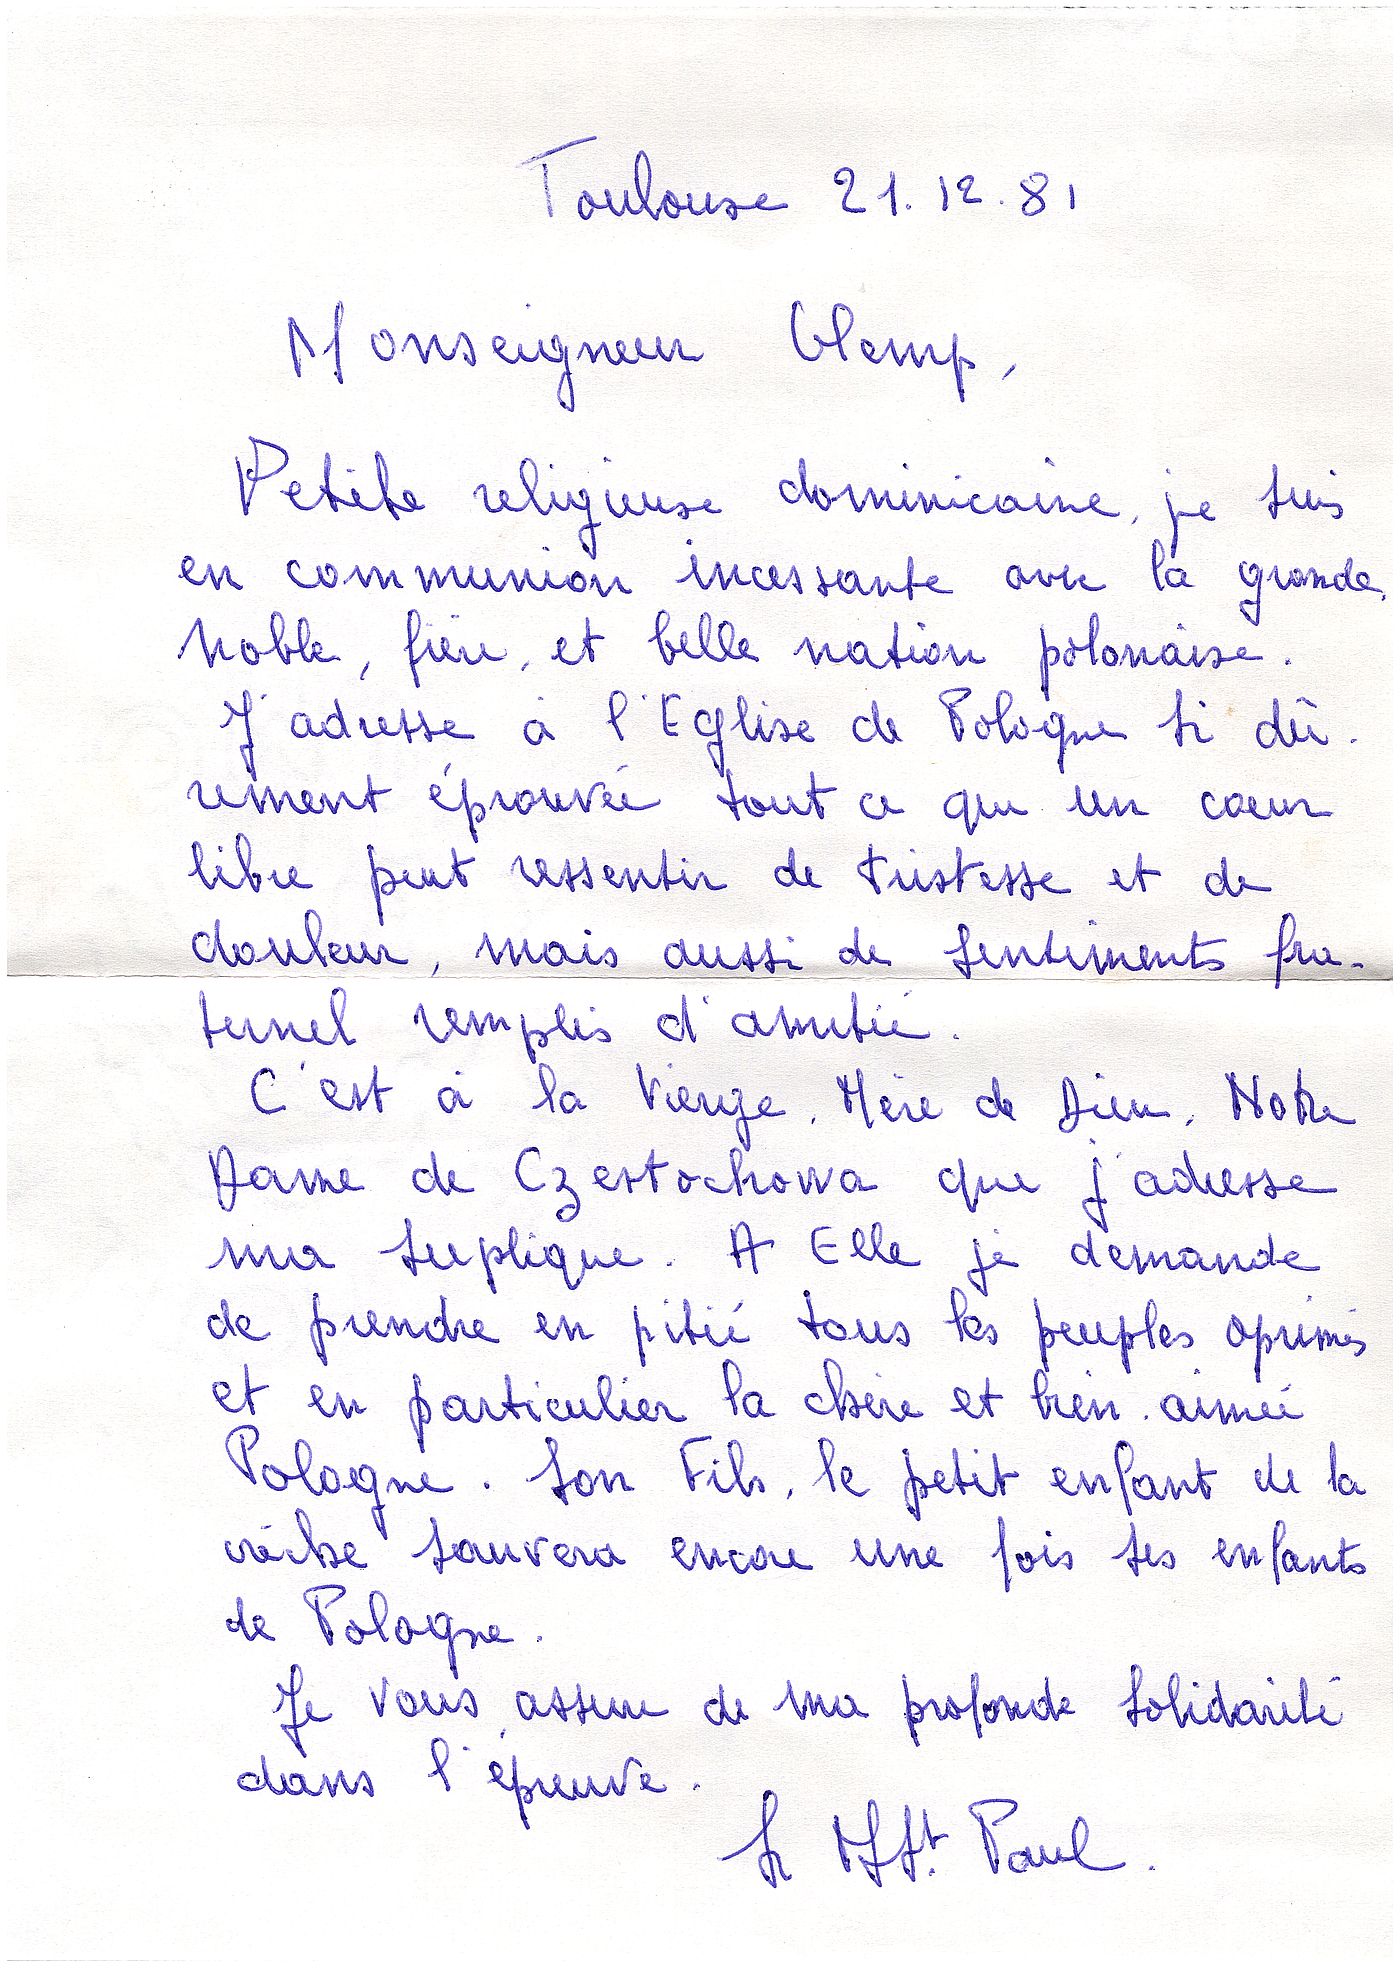 Toulouse 21.12.81
Monseigneur Glemp,
Petite religieuse dominicaine, je suis
en communion incessante avec la grande,
noble, fière, et belle nation polonaise.
J'adresse à l'Eglise de Pologne si dû-
rement éprouvée tout ce que un cœur
libre peut ressentir de tristesse et de
douleur, mais aussi de sentiments fra-
ternel remplis d'amitié.
C'est à la Vierge, Mère de Dieu, Notre
Dame de Czestochowa que j'adresse
ma suplique. A Elle je demande
de prendre en pitié tous les peuples oprimés
et en particulier la chère et bien-aimée
Pologne. Son Fils, le petit enfant de la
crèche sauvera encore une fois ses enfants
de Pologne.
Je vous assure de ma profonde solidarité
dans l'épreuve.
Sr M St. Paul.